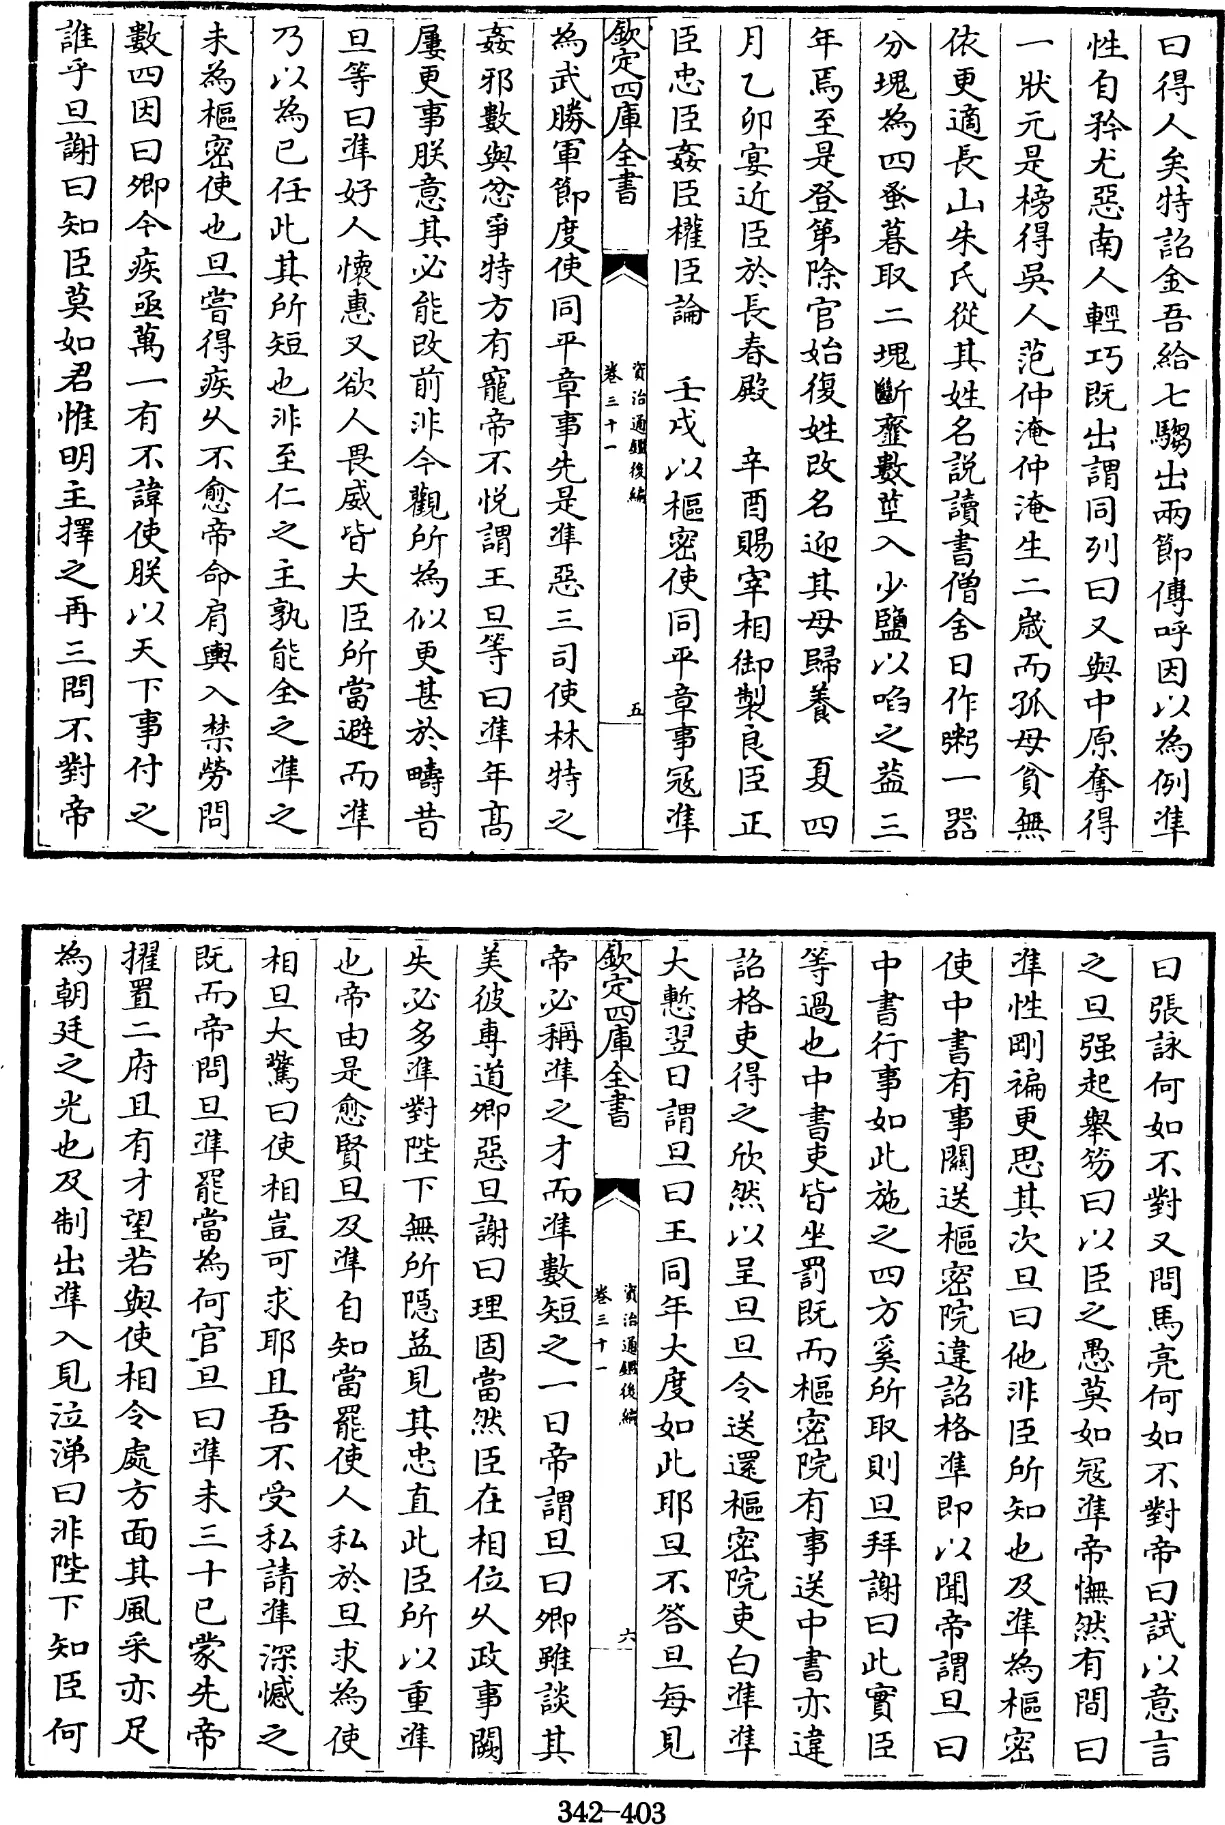 曰得人矣特詔金吾給七騶出兩節傳呼因以為例準
性自矜尤惡南人輕巧既出謂同列曰又與中原奪得
一狀元是榜得吳人范仲淹仲淹生二歲而孤母貧無
依更適長山朱氏從其姓名說讀書僧舍日作粥一器
分塊為四蚤暮取二塊斷虀數莖入少鹽以啗之葢三
年焉至是登第除官始復姓改名迎其母歸養　夏四
月乙卯宴近臣於長春殿　辛酉賜宰相御製良臣正
臣忠臣姦臣權臣論　壬戌以樞密使同平章事冦準
欽定四庫全書
資治通鑑後編
卷三十一
五
為武勝軍節度使同平章事先是準惡三司使林特之
姦邪數與忿爭特方有寵帝不悅謂王旦等曰準年髙
屢更事朕意其必能改前非今觀所為似更甚於疇昔
旦等曰準好人懷惠又欲人畏威皆大臣所當避而準
乃以為已任此其所短也非至仁之主孰能全之準之
未為樞密使也旦嘗得疾久不愈帝命肩輿入禁勞問
數四因曰卿今疾亟萬一有不諱使朕以天下事付之
誰乎旦謝曰知臣莫如君惟明主擇之再三問不對帝
曰張詠何如不對又問馬亮何如不對帝曰試以意言
之旦强起舉笏曰以臣之愚莫如冦準帝憮然有間曰
準性剛褊更思其次旦曰他非臣所知也及準為樞密
使中書有事關送樞密院違詔格準即以聞帝謂旦曰
中書行事如此施之四方奚所取則旦拜謝曰此實臣
等過也中書吏皆坐罰既而樞密院有事送中書亦違
詔格吏得之欣然以呈旦旦令送還樞密院吏白準準
大慙翌日謂旦曰王同年大度如此耶旦不答旦每見
欽定四庫全書
資治通鑑後編
卷三十一
六
帝必稱準之才而準數短之一日帝謂旦曰卿雖談其
美彼專道卿惡旦謝曰理固當然臣在相位久政事闕
失必多準對陛下無所隱益見其忠直此臣所以重準
也帝由是愈賢旦及準自知當罷使人私於旦求為使
相旦大驚曰使相豈可求耶且吾不受私請準深憾之
既而帝問旦準罷當為何官旦曰準未三十已蒙先帝
擢置二府且有才望若與使相令處方面其風采亦足
為朝廷之光也及制出準入見泣涕曰非陛下知臣何
342-403